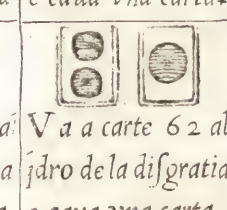 e cada vna carta
Va a carte 62 al
idro de la disgratia
e caua vna carta